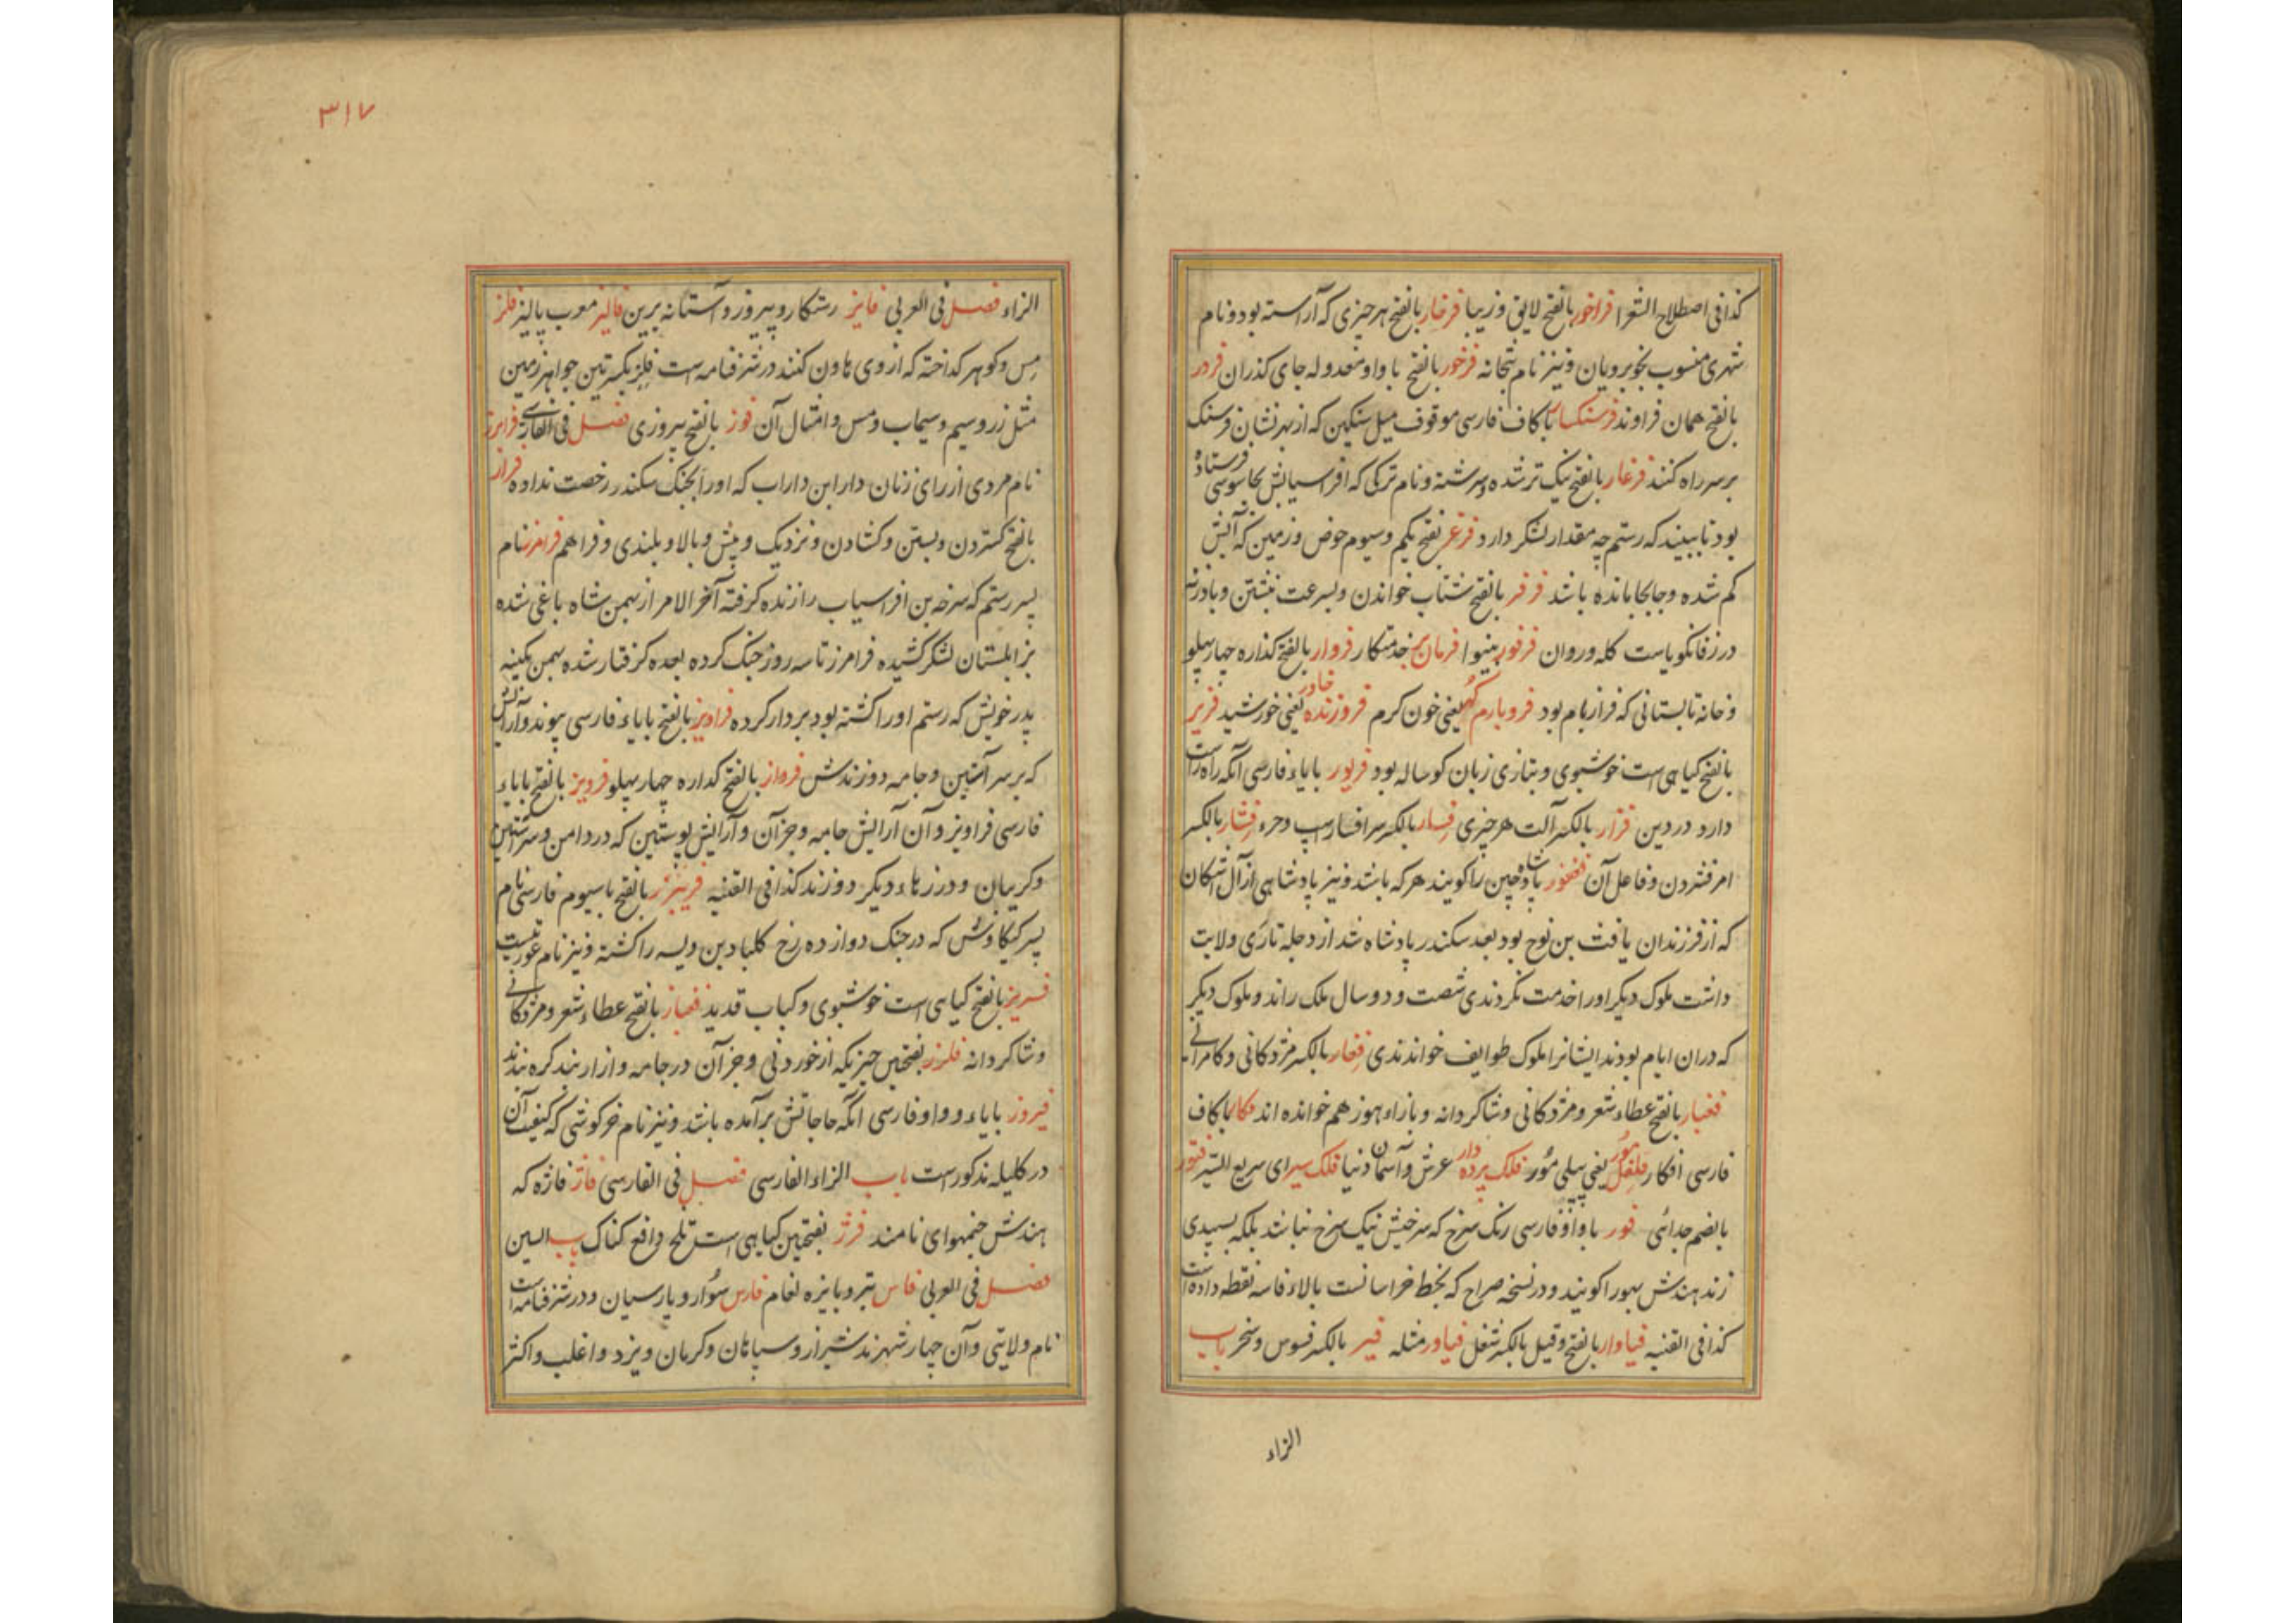 کذافی اصطلاح الشعرا فراخور بالفتح لایق و زیبا فرخار بالفتح هر چیزی که آراسته بود و نام
شهری منسوب بخوبرویان و نیز نام بتخانه فرخور بالفتح با واو معدوله جای کذران فردر
بالفتح همان فراوند فرسنکسار با کاف فارسی موقوف میل سنکین که از بهر نشان فرسنک
بر سر راه کنند فرغار بالفتح نیک تر شده و سرشته و نام ترکی که افراسیابش بجاسوسی فرستاده
بود تا ببیند که رستم چه مقدار لشکر دارد فرغر بفتح یکم و سیوم حوض و زمین که آبش
کم شده و جابجا مانده باشد فرفر بالفتح شتاب خواندن و بسرعت نبشتن و بادرنه
در زفانکویاست کله و روان فرفور بینوا فرمان بر خدمتکار فروار بالفتح کذاره چهار پهلو
و خانه تابستانی که فراز بام بود فروبارم کهر یعنی خون کرم فروزنده خاور یعنی خورشید فریر
بالفتح کیاهی است خوشبوی و بتازی زبان کوساله بود فریور با یاء فارسی آنکه راه راست
دارد در دین فزار بالکسر آلت هر چیزی فسار بالکسر سرافسار اسپ و خره فشار بالکسر
امر فشردن و فاعل آن فغفور پادشاه چین را کویند هر که باشد و نیز پادشاهی از آل اشکان
که از فرزندان یافث بن نوح بود بعد سکندر پادشاه شد از دجله تا ری ولایت
داشت ملوک دیکر او را خدمت نکردندی شصت و دو سال ملک راند و ملوک دیکر
که دران ایام بودند ایشانرا ملوک طوایف خواندندی فغار بالکسر مژدکانی و کامرانی
فغیار بالفتح عطاء شعر و مژدکانی و شاکردانه و بازاء هوز هم خوانده اند فکار با کاف
فارسی افکار فلفل مور یعنی پیلی مور فلک پرده دار عرش و آسمان دنیا فلک سیر ای سریع السیر فتور
بالضم جدائی فور با واو فارسی رنک سرخ که سرخیش نیک سرخ نباشد بلکه بسپیدی
زند هندش بهورا کویند و در نسخه صراح که بخط خراسانست بالاء فاسه نقطه داده است
کذافی القنیه فیاوار بالفتح و قیل بالکسر شغل فیاور مثله فیر بالکسر فسوس و سخر باب
الزاء
۳۱۷
الزاء فصل فی العربی فایز رستکار و پیروز و آستانه برین فالیز معرب پالیز فلز
مس و کوهر کداخته که از وی هاون کنند در شرفنامه است فلز بکسرتین جواهر زمین
مثل زر و سیم و سیماب و مس و امثال آن فوز بالفتح پیروزی فصل فی الفارسی فرابرز
نام مردی از رای زنان دارا بن داراب که او را بجنک سکندر رخصت نداده فراز
بالفتح کستردن و بستن و کشادن و نزدیک و پیش و بالا و بلندی و فراهم فرامرز نام
پسر رستم که سرخه بن افراسیاب را زنده کرفته آخر الامر از بهمن شاه باغی شده
بزابلستان لشکر کشیده فرامرز تا سه روز جنک کرده بعده کرفتار شده بهمن بکینه
پدر خویش که رستم او را کشته بود بردار کرده فراویز بالفتح با یاء فارسی پیوند و آرایش
که بر سر آستین و جامه دوزندش فرواز بالفتح کداره چهار پهلو فرویز بالفتح با یاء
فارسی فراویز و آن آرایش جامه و جز آن و آرایش پوستین که در دامن و سر آستین
و کریبان و درزهاء دیکر دوزند کذافی القنیه فریبرز بالفتح با سیوم فارسی نام
پسر کیکاوس که در جنک دوازده رخ کلباد بن ویسه را کشته و نیز نام عورتیست
فسریز بالفتح کیاهی است خوشبوی و کباب قدید فغیاز بالفتح عطاء شعر و مژدکانی
و شاکردانه فلرز بفتحتین چیزیکه از خوردنی و جز آن در جامه و ازار بند کره بندند
فیروز با یاء و واو فارسی آنکه حاجاتش برآمده باشد و نیز نام خرکوشی که کیفیت آن
در کلیله مذکورست باب الزاء الفارسی فصل فی الفارسی فاژ فاژه که
هندش جنبهوای نامند فرژ بفتحتین کیاهی است تلخ دافع کناک باب السین
فصل فی العربی فاس تبر و بایزه لغام فارس سوار و پارسیان و در شرفنامه است
نام ولایتی و آن چهار شهرند شیراز و سپاهان و کرمان و یزد و اغلب و اکثر